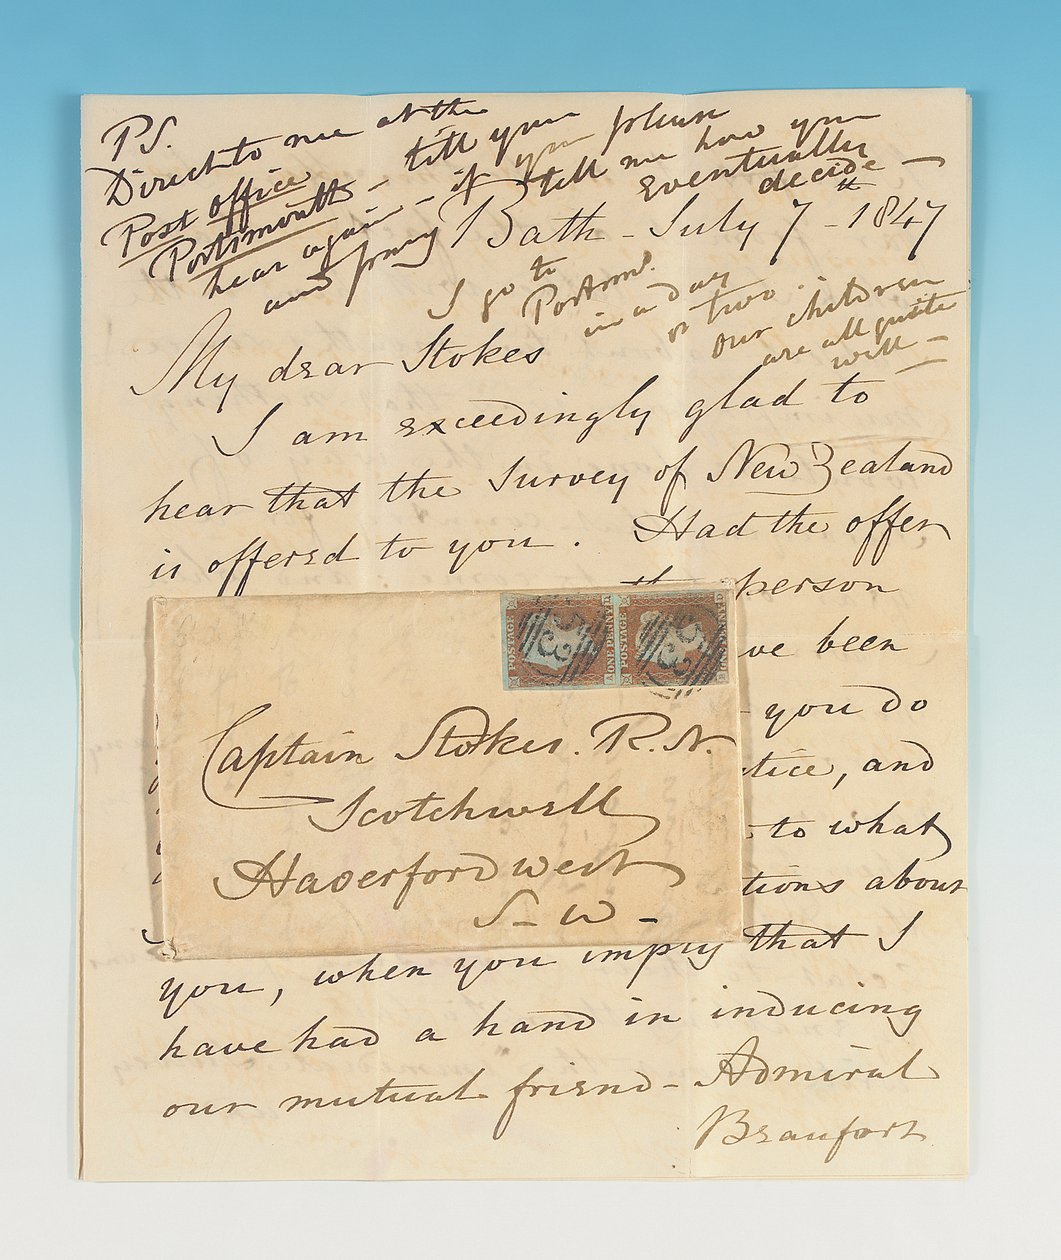 P.S.
Direct to me at the
Post office
Portsmouth - till you
hear again - if you please
and pray tell me how you
eventually
decide -
Bath - July 7th - 1847
I go to
Portsmo.
in a day
or two.
Our children
are all quite
well -
My dear Stokes
I am exceedingly glad to
hear that the Survey of New Zealand
is offered to you. Had the offer
person
ve been
- you do
tice, and
to what
tions about
you, when you imply that I
have had a hand in inducing
our mutual friend - Admiral
Beaufort
POSTAGE
ONE PENNY
POSTAGE
53
53
Captain Stokes. R.N.
Scotchwell
Haverfordwest
S - W -